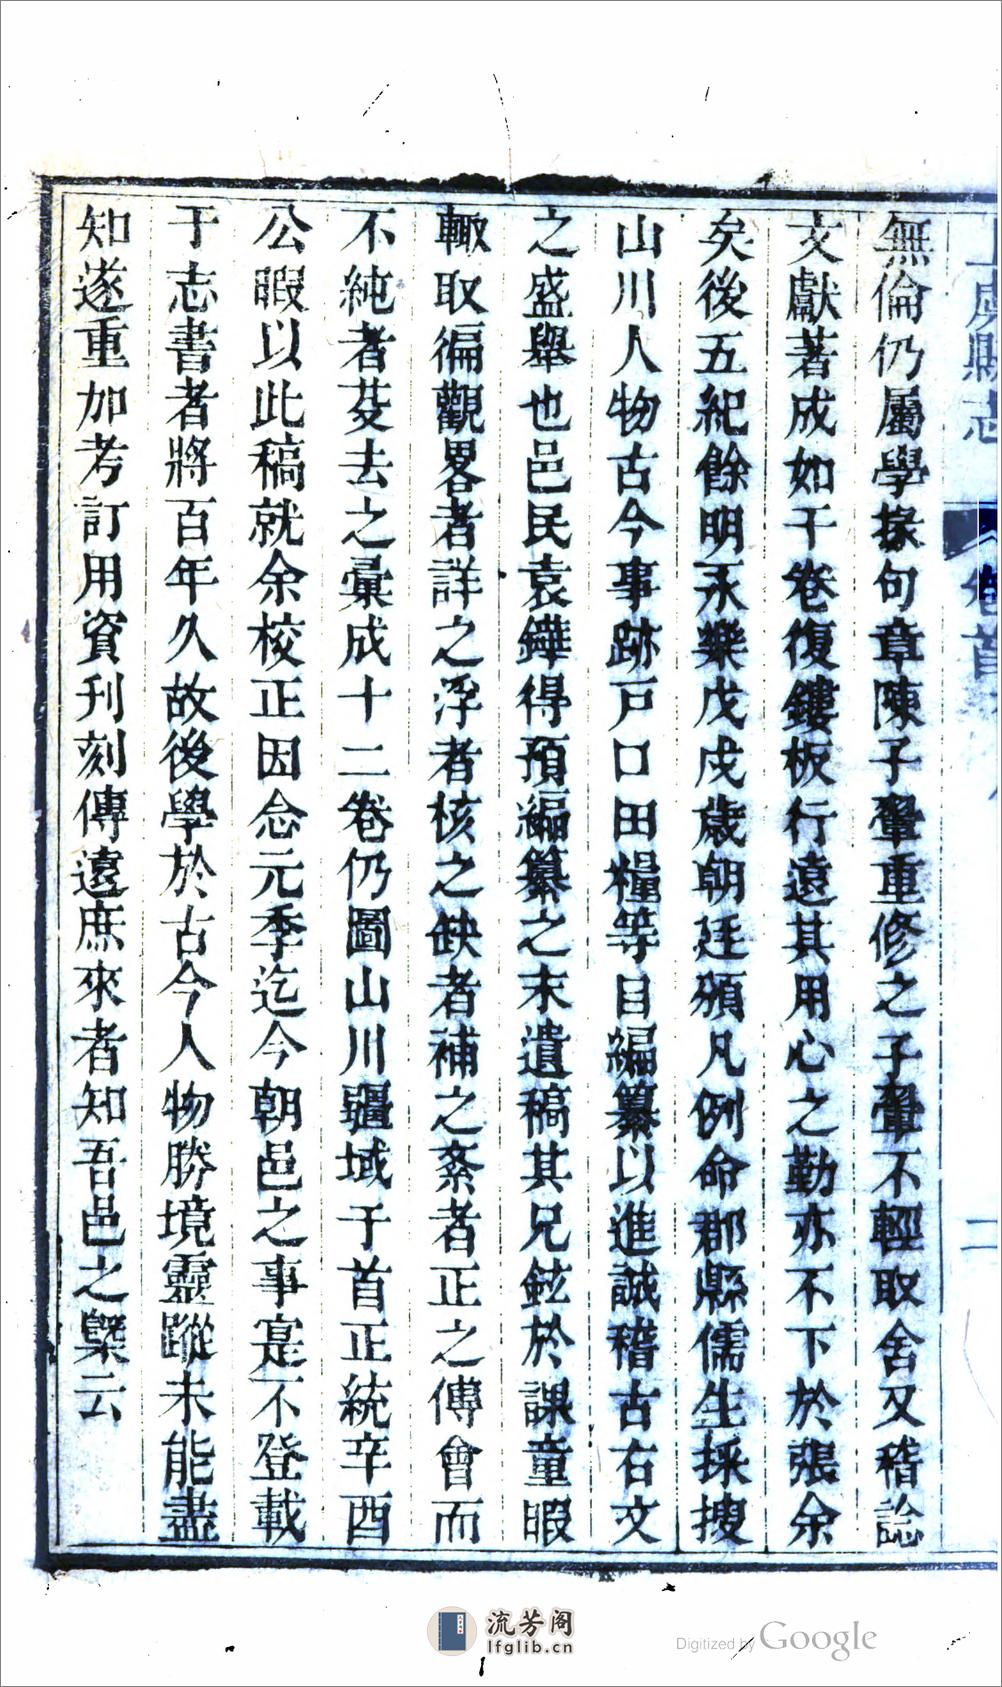 上虞縣志
卷首
二
無倫仍屬學掾句章陳子翬重修之子翬不輕取舍又稽諸
文獻著成如干卷復鏤板行遠其用心之勤亦不下於張余
矣後五紀餘明永樂戊戌歲朝廷頒凡例命郡縣儒生採搜
山川人物古今事跡戸口田糧等目編纂以進誠稽古右文
之盛舉也邑民袁鏵得預編纂之末遺稿其兄鉉於課童暇
輙取徧觀畧者詳之浮者核之缺者補之紊者正之傅會而
不純者芟去之彙成十二卷仍圖山川疆域于首正統辛酉
公暇以此稿就余校正因念元季迄今朝邑之事寔不登載
于志書者將百年久故後學於古今人物勝境靈蹤未能盡
知遂重加考訂用資刊刻傳遠庶來者知吾邑之槩云
流芳阁
lfglib.cn
Digitized by Google